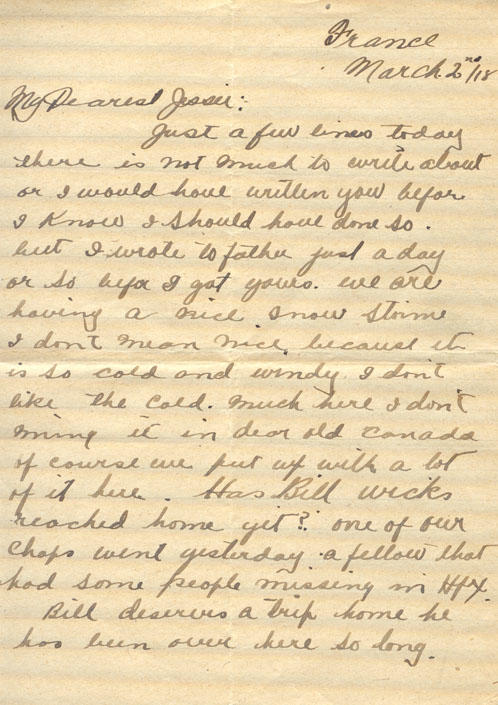 France
March 2nd/18
My Dearest Jessie:
Just a few lines today
there is not much to write about
or I would have written you befor
I know I should have done so.
but I wrote to father just a day
or so befor I got yours. we are
having a nice snow storme
I dont mean nice, because it
is so cold and windy I don't
like the cold. much here I don't
ming it in dear old Canada
of course we put up with a lot
of it here. Has Bill wicks
reached home yet? one of our
Chaps went yesterday a fellow that
had some people missing in Hfx.
Bill deserves a trip home he
has been over here so long.